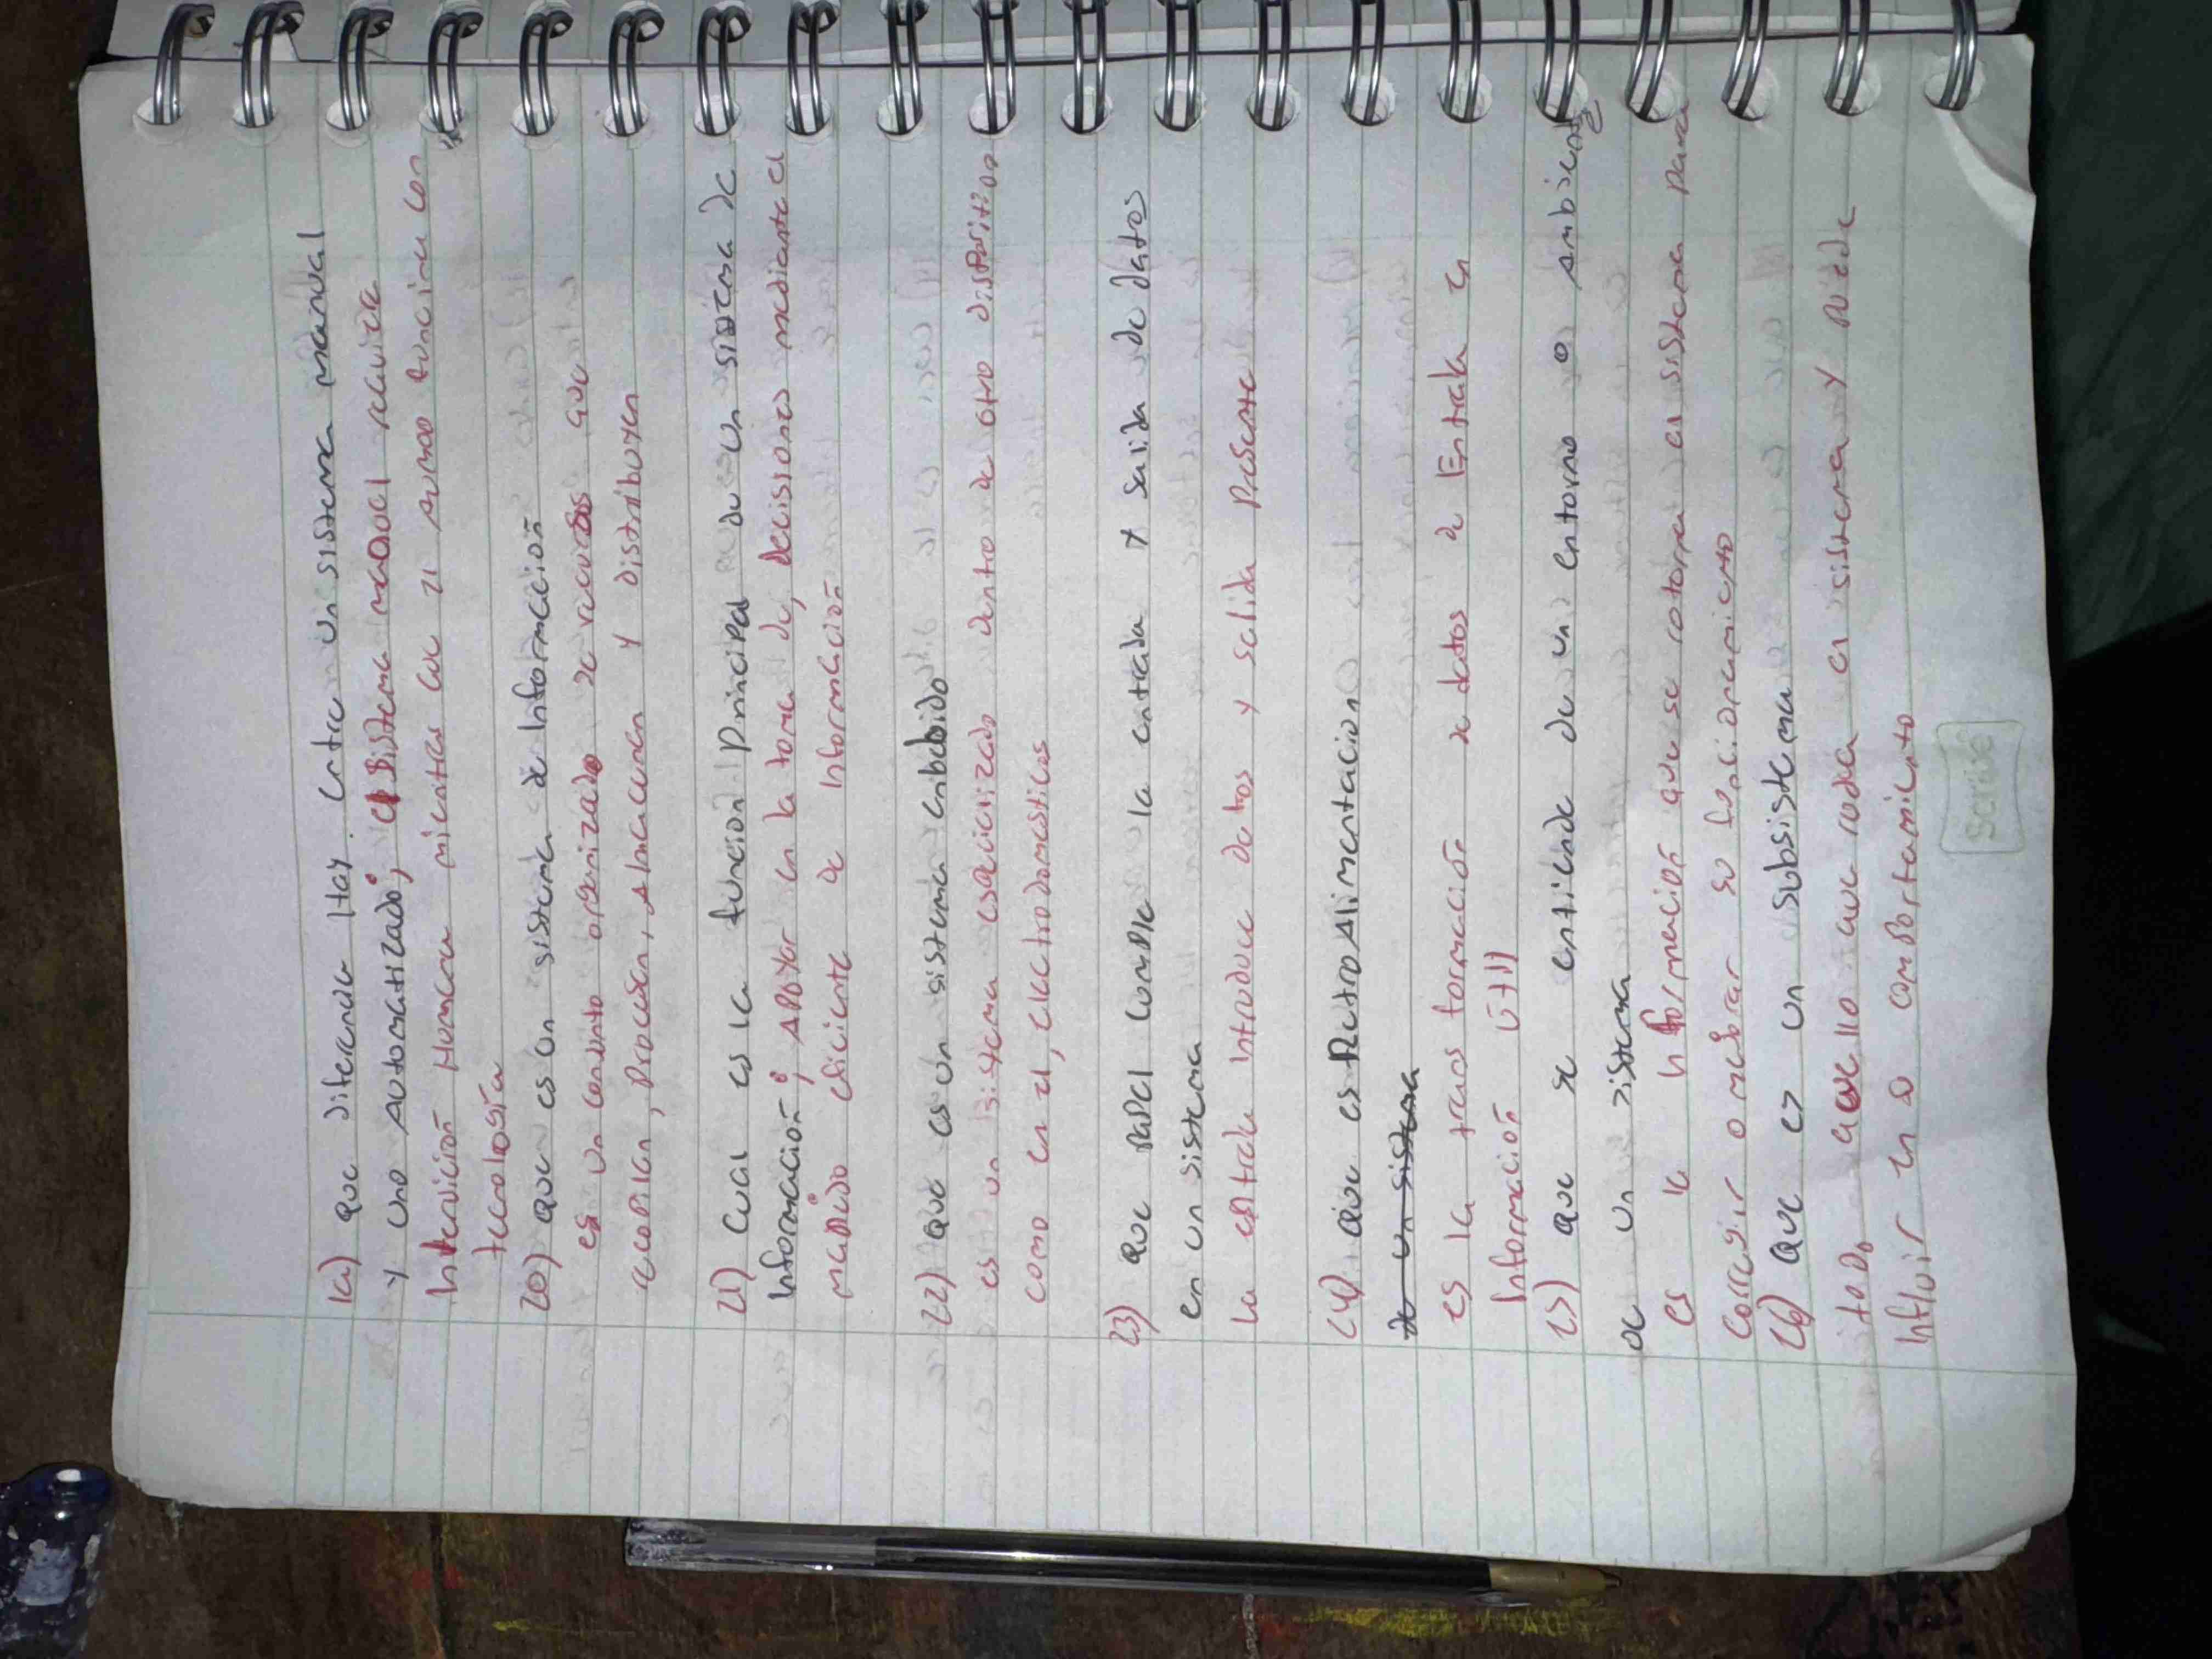 19) que diferencia Hay entre un sistema manual
y uno automatizado; el sistema manual requiere
Intervicion Humana mientras que el automo funciona con
tecnologia
20) que es un sistema de Informacion
es un conjunto organizado de recursos que
recopilan, Procesan, Almacenan y distribuyen
21) Cual es la funcion Principal de un sistema de
Informacion; Apoyar en la toma de, decisiones mediante el
manejo eficiente de Informacion
22) que es un sistema enbebido
es un sistema especializado dentro de otro dispositivo
como en el, electrodomesticos
23) que papel cumple la entrada y salida de datos
en un sistema
La entrada Introduce datos y salida Presenta
24) que es RetroAlimentacion
de un sistema
es la trans formacion de datos de Entrada en
Informacion util
25) que se entiende de un entorno o ambiente
de un sistema
es la Informacion que se retorna en sistema para
Corregir o mejorar su funcionamiento
26) Que es un subsistema
todo aquello que rodea en sistema y puede
Influir en o comportamiento
scribe